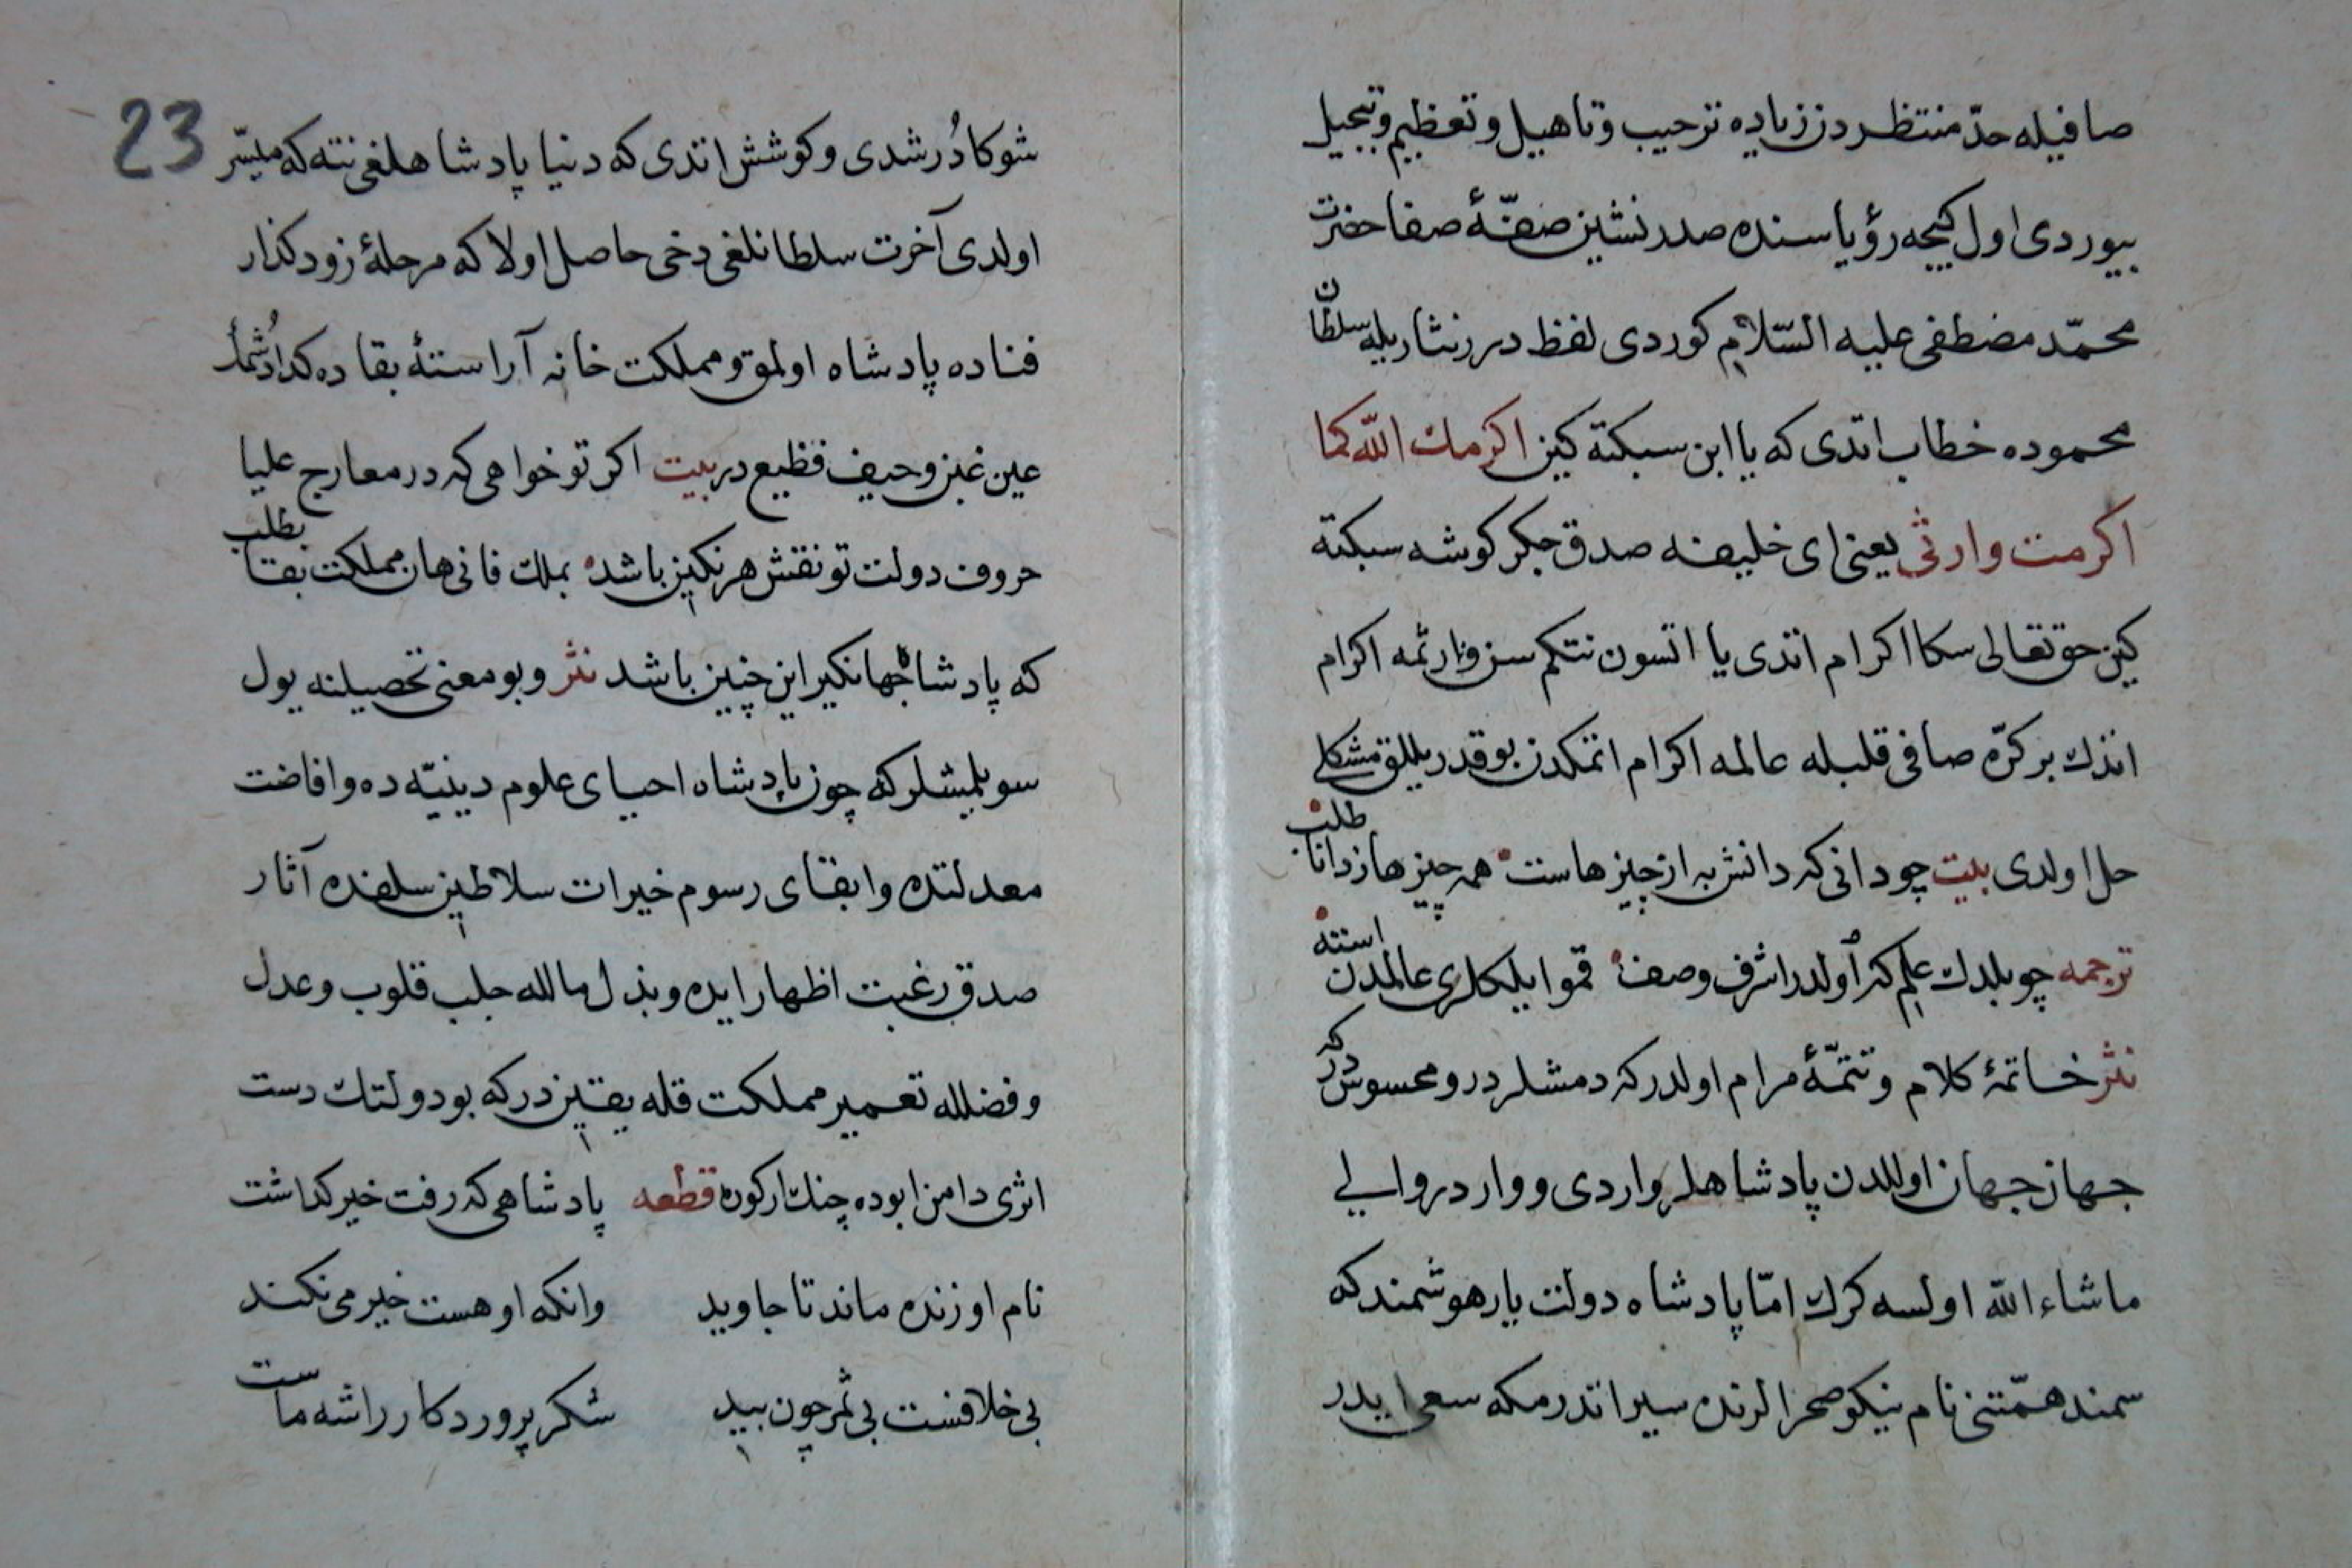 صافیله حدّ منتظردن زیاده ترحیب و تاهیل و تعظیم و تبجیل
بیوردی اول کیجه رؤیاسنده صدرنشین صفّهٔ صفا حضرت
محمّد مصطفی علیه السّلام کوردی لفظ درر نثاریله سلطان
محموده خطاب اتدی که یا ابن سبکتکین اکرمك اللّه کما
اکرمت وارثی یعنی ای خلیفه صدق جکر کوشه سبکتکین
حق تعالی سکا اکرام اتدی یا اتسون نتکم سن وارثمه اکرام
اتدك بر کرّه صافی قلبله عالمه اکرام اتمکدن بو قدر یللق مشکلی
حل اولدی بیت چو دانی که دانش به از چیزهاست همه چیزها ز دانا طلب
ترجمه چو بلدك علم که اولدر اشرف وصف قمو ایلکلری عالمدن استه
نثر خاتمهٔ کلام و تتمّهٔ مرام اولدر که دمشلردر و محسوسدر که
جهان جهان اوللدن پادشاهلر واردی و واردر و ایلی
ماشاء اللّه اولسه کرك امّا پادشاه دولت یار هوشمند که
سمند همّتنی نام نیکو صحرالرنده سیر اتدرمکه سعی ایدر
23
شوکا دُرشدی و کوشش اتدی که دنیا پادشاهلغی نته که میسّر
اولدی آخرت سلطانلغی دخی حاصل اولا که مرحلهٔ زود کذار
فناده پادشاه اولمق و مملکت خانه آراستهٔ بقاده کدا دُشمك
عین غبن و حیف فظیع در بیت اکر تو خواهی که در معارج علیا
حروف دولت تو نقش هر نکین باشد بملك فانی هان مملکت بقا بطلب
که پادشاه جهانکیر این چنین باشد نثر و بو معنی تحصیلنه یول
سویلمشلر که چون پادشاه احیای علوم دینیّه ده و افاضت
معدلتده و ابقای رسوم خیرات سلاطین سلفنده آثار
صدق رغبت اظهار ایده و بذل مالله جلب قلوب و عدل
و فضلله تعمیر مملکت قله یقین در که بو دولتك دست
اثری دامن ابوده چنك ار کوره قطعه پادشاهی که رفت خیر کداشت
نام او زنده ماند تا جاوید وانکه او هست خیر می نکند
بی خلافست بی ثمر چون بید شکر پروردکار را شه ماست